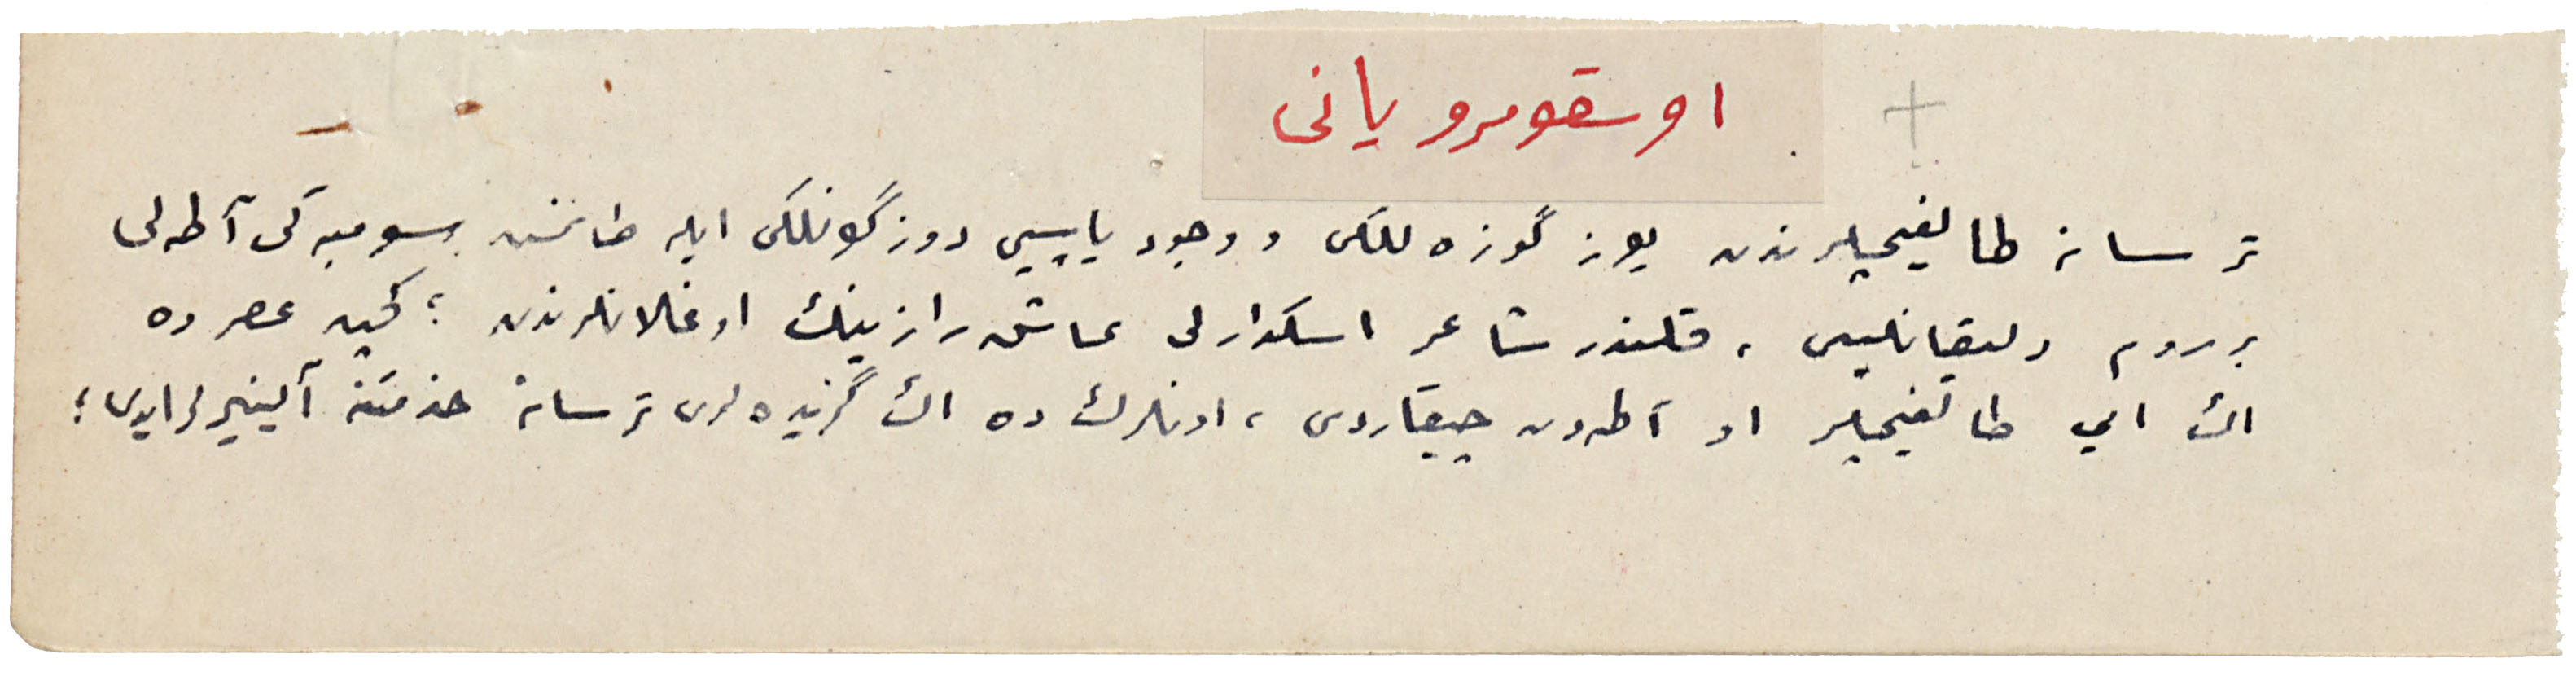 اوسقومرو یانی
ترسانه طالغیجیلرندن یوز گوزه للکی و وجود یاپیسی دوزگونلکی ایله طاننمش سومبه کی آطه لی
بر روم دلیقانلیسی ، قلندر شاعر اسکدارلی عاشق رازینك اوغلانلرندن ؛ گچن عصرده
اڭ ایی طالغیجیلر او آطه دن چیقاردی ، اونلرك ده اڭ گزیده لری ترسانه خذمتنه آلینیرلر ایدی ؛